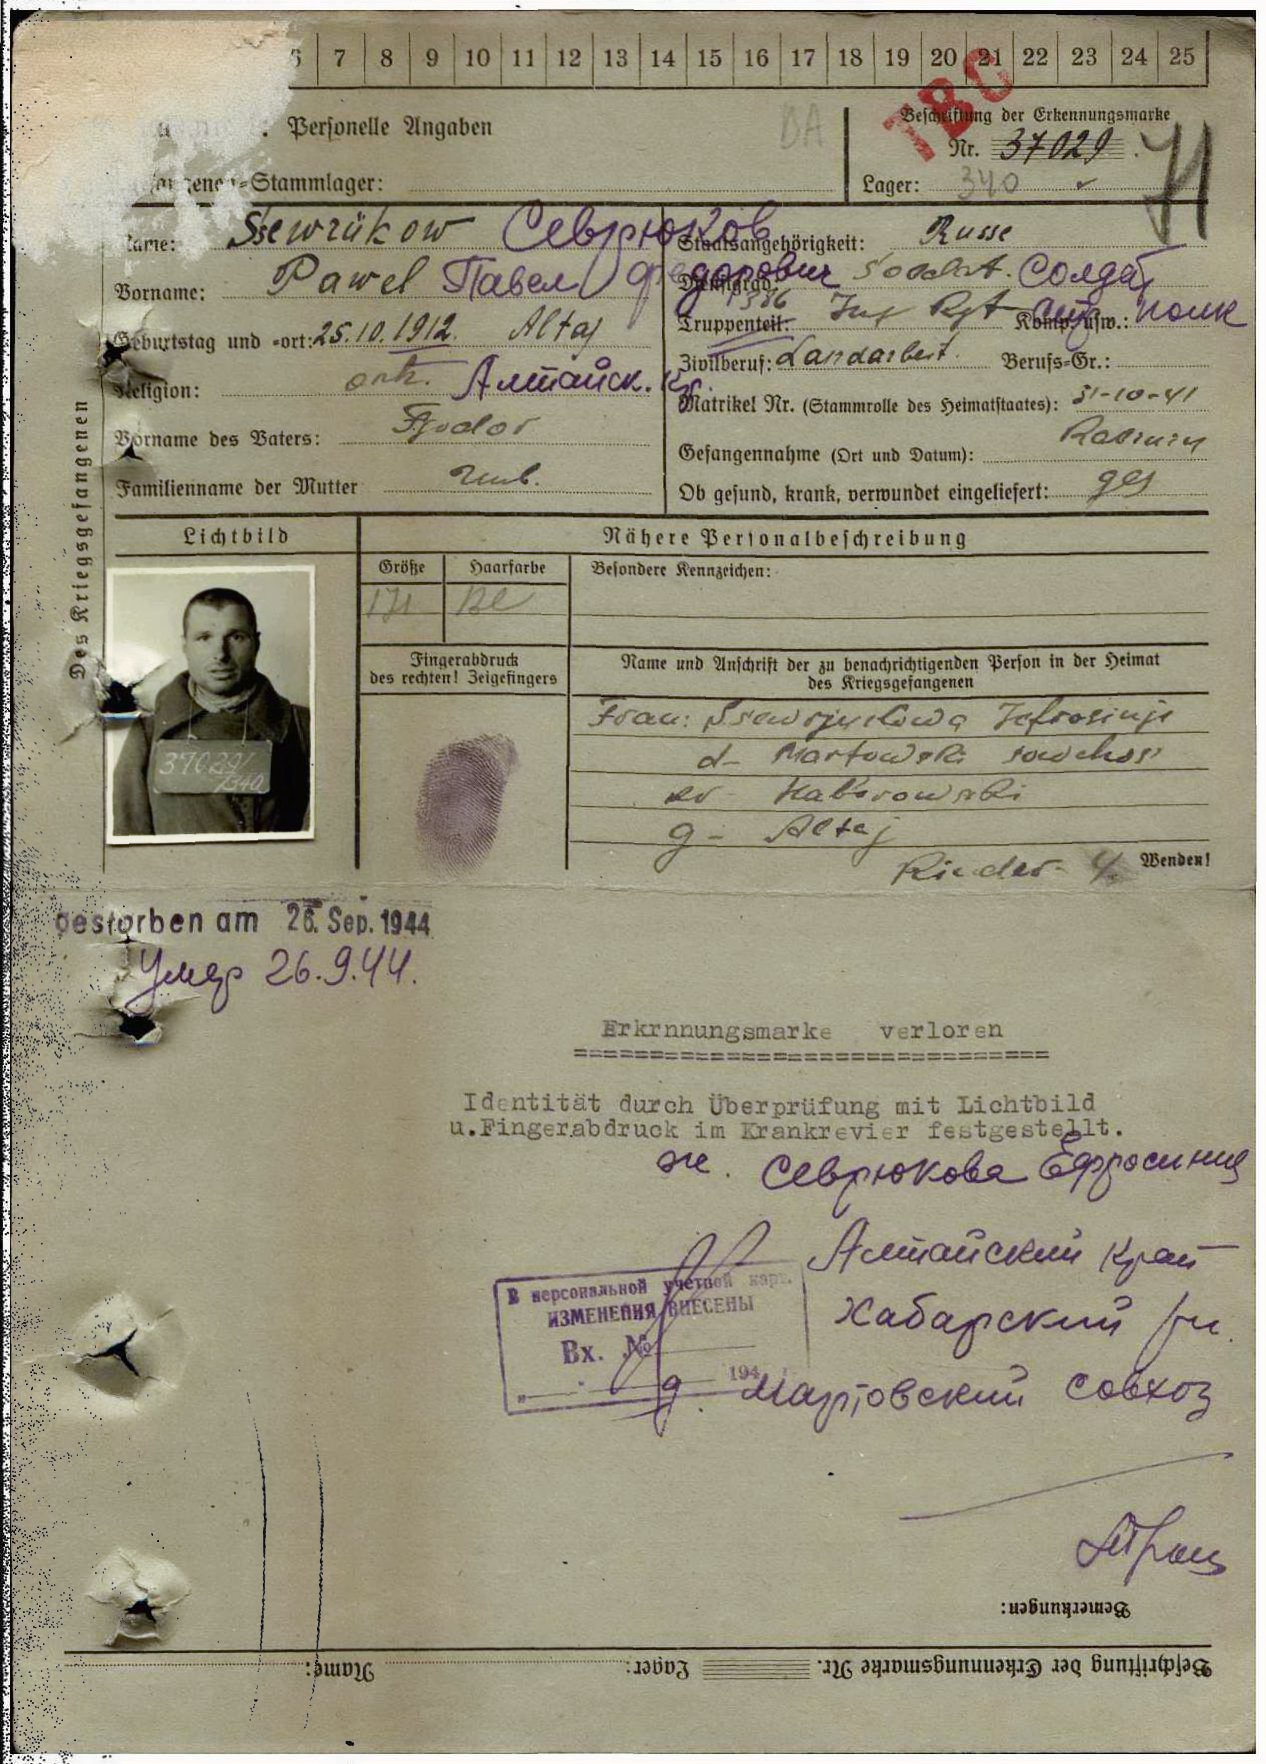 6 7 8 9 10 11 12 13 14 15 16 17 18 19 20 21 22 23 24 25
TBC
: Personelle Angaben
DA
Beschriftung der Erkennungsmarke
Nr. 37029
Lager: 340
-Stammlager:
Name: Ssewrükow Севрюков
Staatsangehörigkeit: Russe
Vorname: Pawel Павел Федорович
Dienstgrad: Soldat. Солдат
Truppenteil: 1386 Inf Rgt Komp. usw.: полк
Geburtstag und -ort: 25.10.1912. Altaj
Zivilberuf: Landarbeit. Berufs-Gr.:
Religion: orth. Алтайск. кр.
Matrikel Nr. (Stammrolle des Heimatstaates): 51-10-41
Vorname des Vaters: Fjodor
Gefangennahme (Ort und Datum):
Familienname der Mutter Unb.
Ob gesund, krank, verwundet eingeliefert: ges
Des Kriegsgefangenen
Lichtbild
Nähere Personalbeschreibung
Größe Haarfarbe Besondere Kennzeichen:
171 Bl
Fingerabdruck
des rechten! Zeigefingers
Name und Anschrift der zu benachrichtigenden Person in der Heimat
des Kriegsgefangenen
Frau: Ssewrjukowa Jefrosinja
d- Martowski sowchos
Kr- Habarowski
g- Altaj
Kinder- 4.
Wenden!
37029/
/340
gestorben am 26. Sep. 1944
Умер 26.9.44.
Erkrnnungsmarke verloren
==============================
Identität durch Überprüfung mit Lichtbild
u.Fingerabdruck im Krankrevier festgestellt.
ж. Севрюкова Ефросиния
Алтайский край
Хабарский рн.
д. Мартовский совхоз
В персональной учетной карт.
ИЗМЕНЕНИЯ ВНЕСЕНЫ
Вх. №
194
Bemerkungen:
Beschriftung der Erkennungsmarke Nr. Lager: Name: